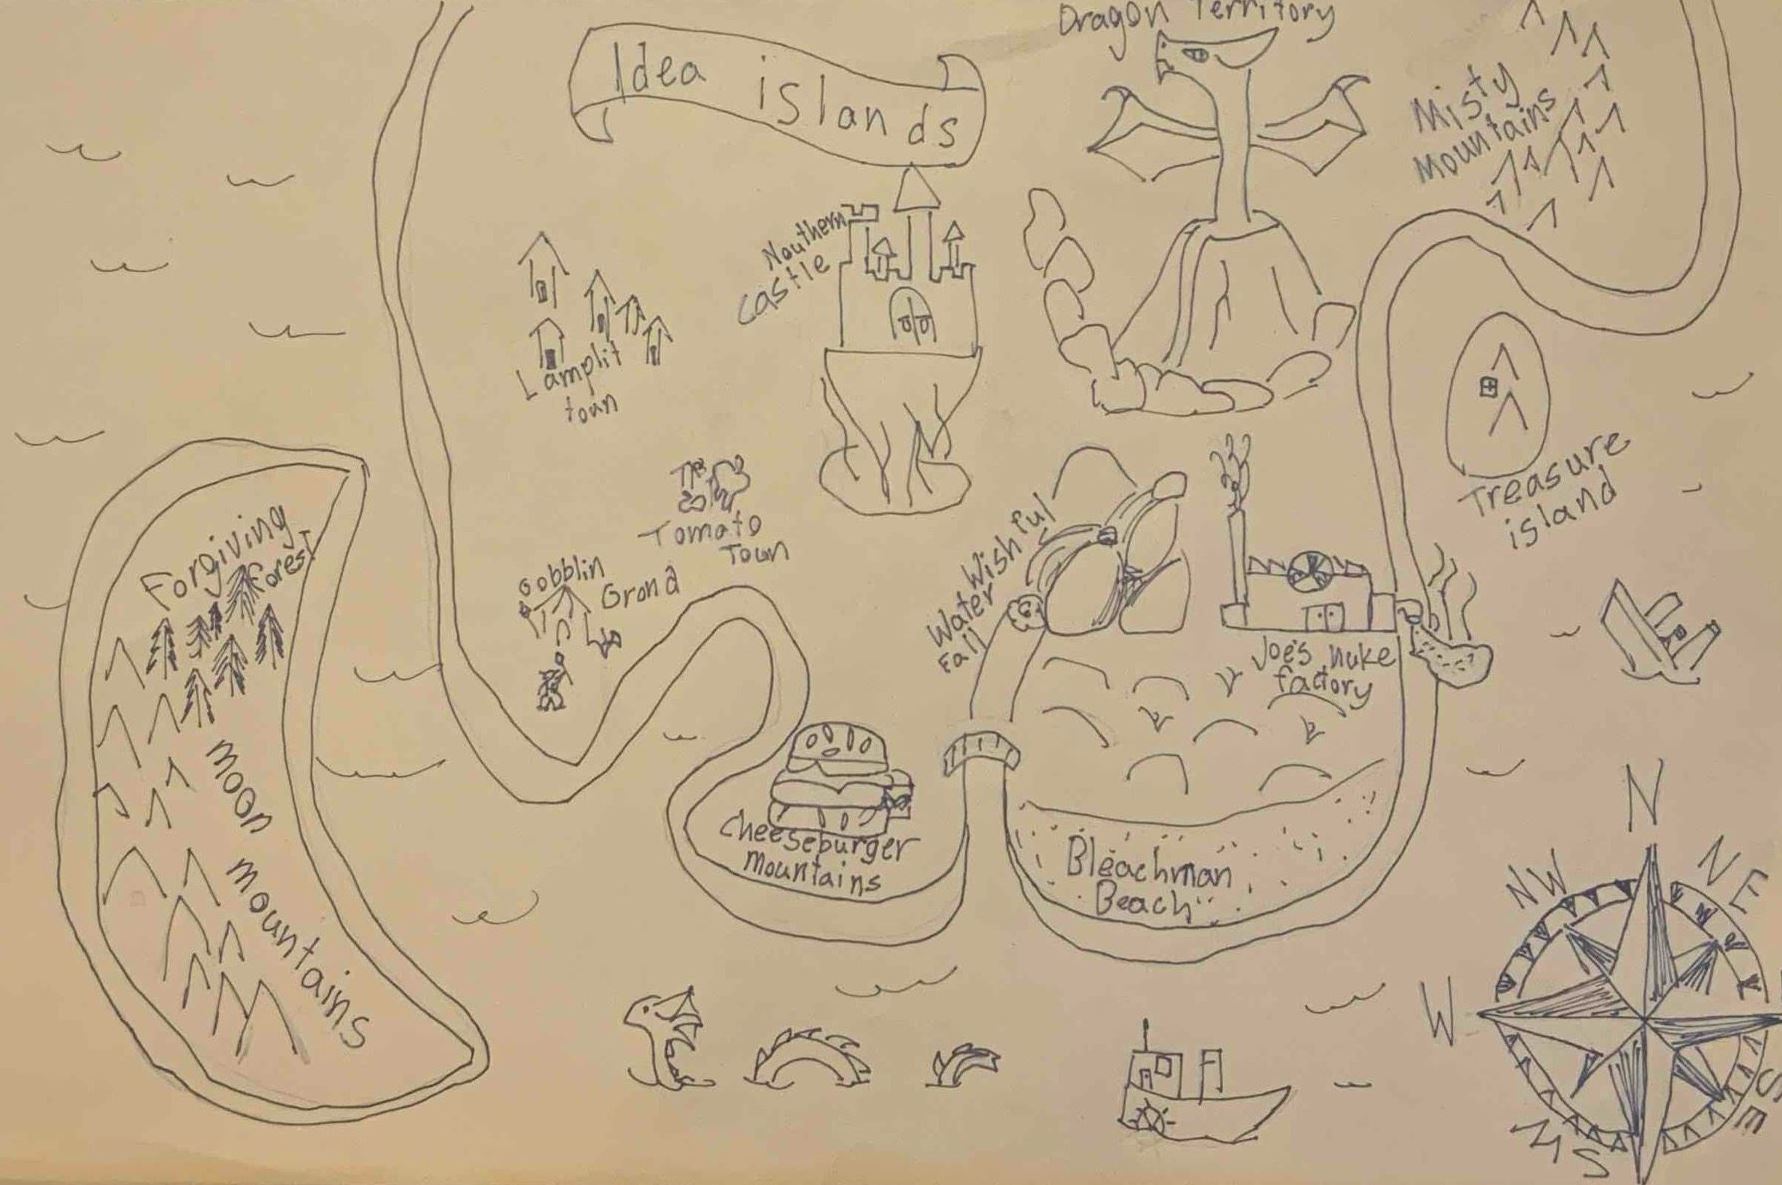 Dragon Territory
Idea islands
Misty
Mountains
Nouthern
castle
Lamplit
town
Treasure
island
Tomato
Town
Gobblin
Grond
Wishful
Water
Fall
Forgiving
Forest
Joe's nuke
factory
moon mountains
Cheeseburger
Mountains
Bleachman
Beach
N
NW
NE
W
SE